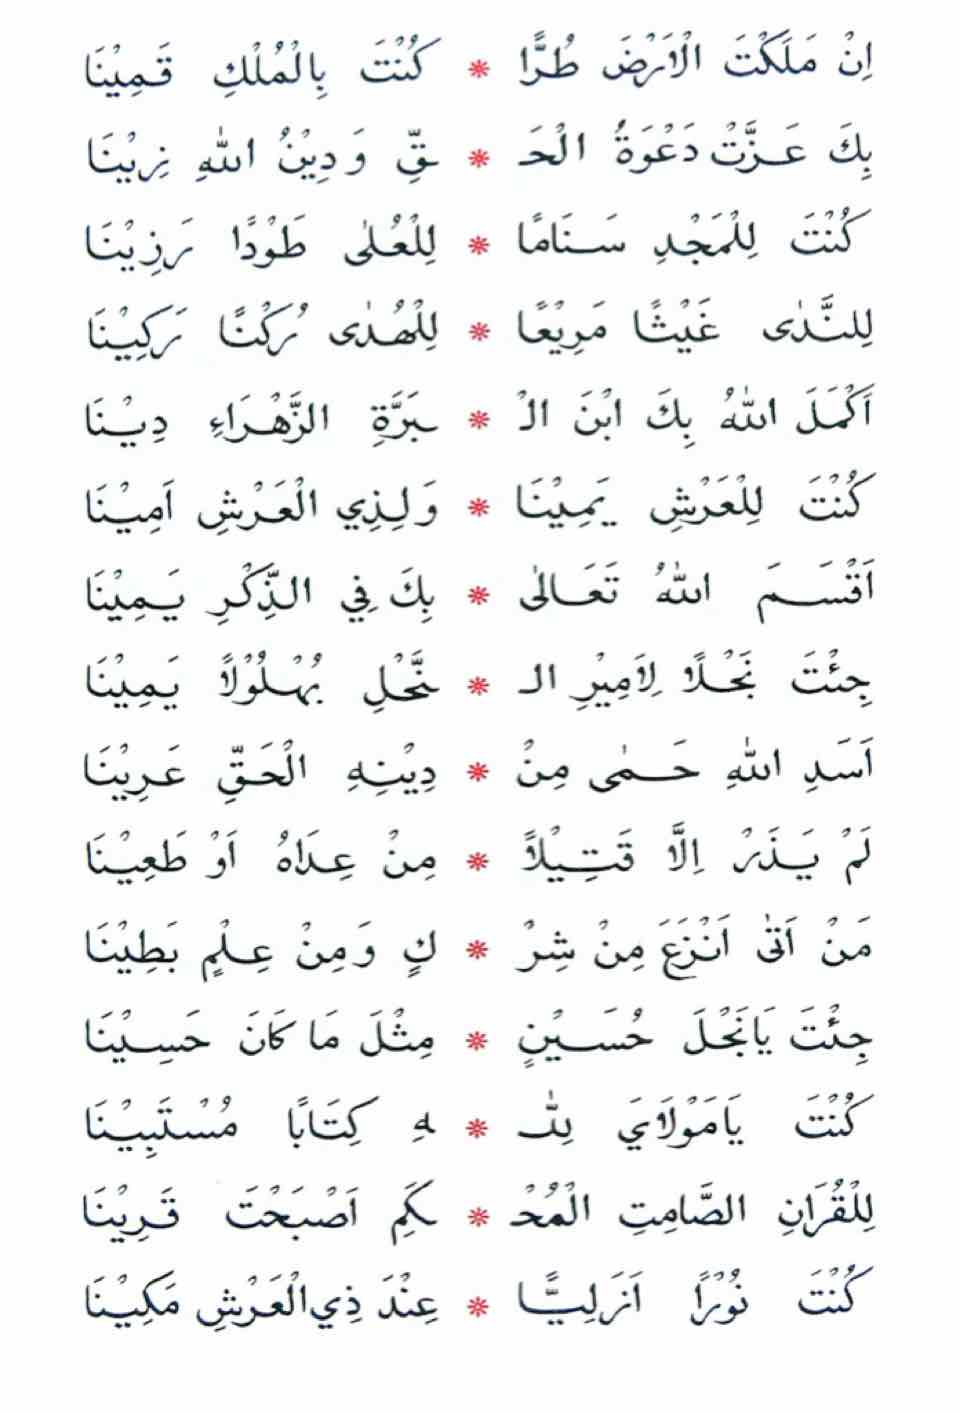 اِنْ مَلَكْتَ الْاَرْضَ طُرًّا * كُنْتَ بِالْمُلْكِ قَمِيْنَا
بِكَ عَزَّتْ دَعْوَةُ الْحَـ * ـقِّ وَدِيْنُ اللهِ زِيْنَا
كُنْتَ لِلْمَجْدِ سَنَامًا * لِلْعُلٰى طَوْدًا رَزِيْنَا
لِلنَّدٰى غَيْثًا مَرِيْعًا * لِلْهُدٰى رُكْنًا رَكِيْنَا
اَكْمَلَ اللهُ بِكَ ابْنَ الْـ * ـبَرَّةِ الزَّهْرَاءِ دِيْنَا
كُنْتَ لِلْعَرْشِ يَمِيْنَا * وَلِذِي الْعَرْشِ اَمِيْنَا
اَقْسَمَ اللهُ تَعَالٰى * بِكَ فِي الذِّكْرِ يَمِيْنَا
جِئْتَ نَجْلًا لِاَمِيْرِ الـ * ـنَّحْلِ بُهْلُوْلًا يَمِيْنَا
اَسَدِ اللهِ حَمٰى مِنْ * دِيْنِهِ الْحَقِّ عَرِيْنَا
لَمْ يَذَرْ اِلَّا قَتِيْلًا * مِنْ عِدَاهُ اَوْ طَعِيْنَا
مَنْ اَتٰى اَنْزَعَ مِنْ شِرْ * كٍ وَمِنْ عِلْمٍ بَطِيْنَا
جِئْتَ يَانَجْلَ حُسَيْنٍ * مِثْلَ مَا كَانَ حَسِيْنَا
كُنْتَ يَامَوْلَايَ لِلّٰـ * ـهِ كِتَابًا مُسْتَبِيْنَا
لِلْقُرَانِ الصَّامِتِ الْمُحْـ * ـكَمِ اَصْبَحْتَ قَرِيْنَا
كُنْتَ نُوْرًا اَزَلِيًّا * عِنْدَ ذِي الْعَرْشِ مَكِيْنَا